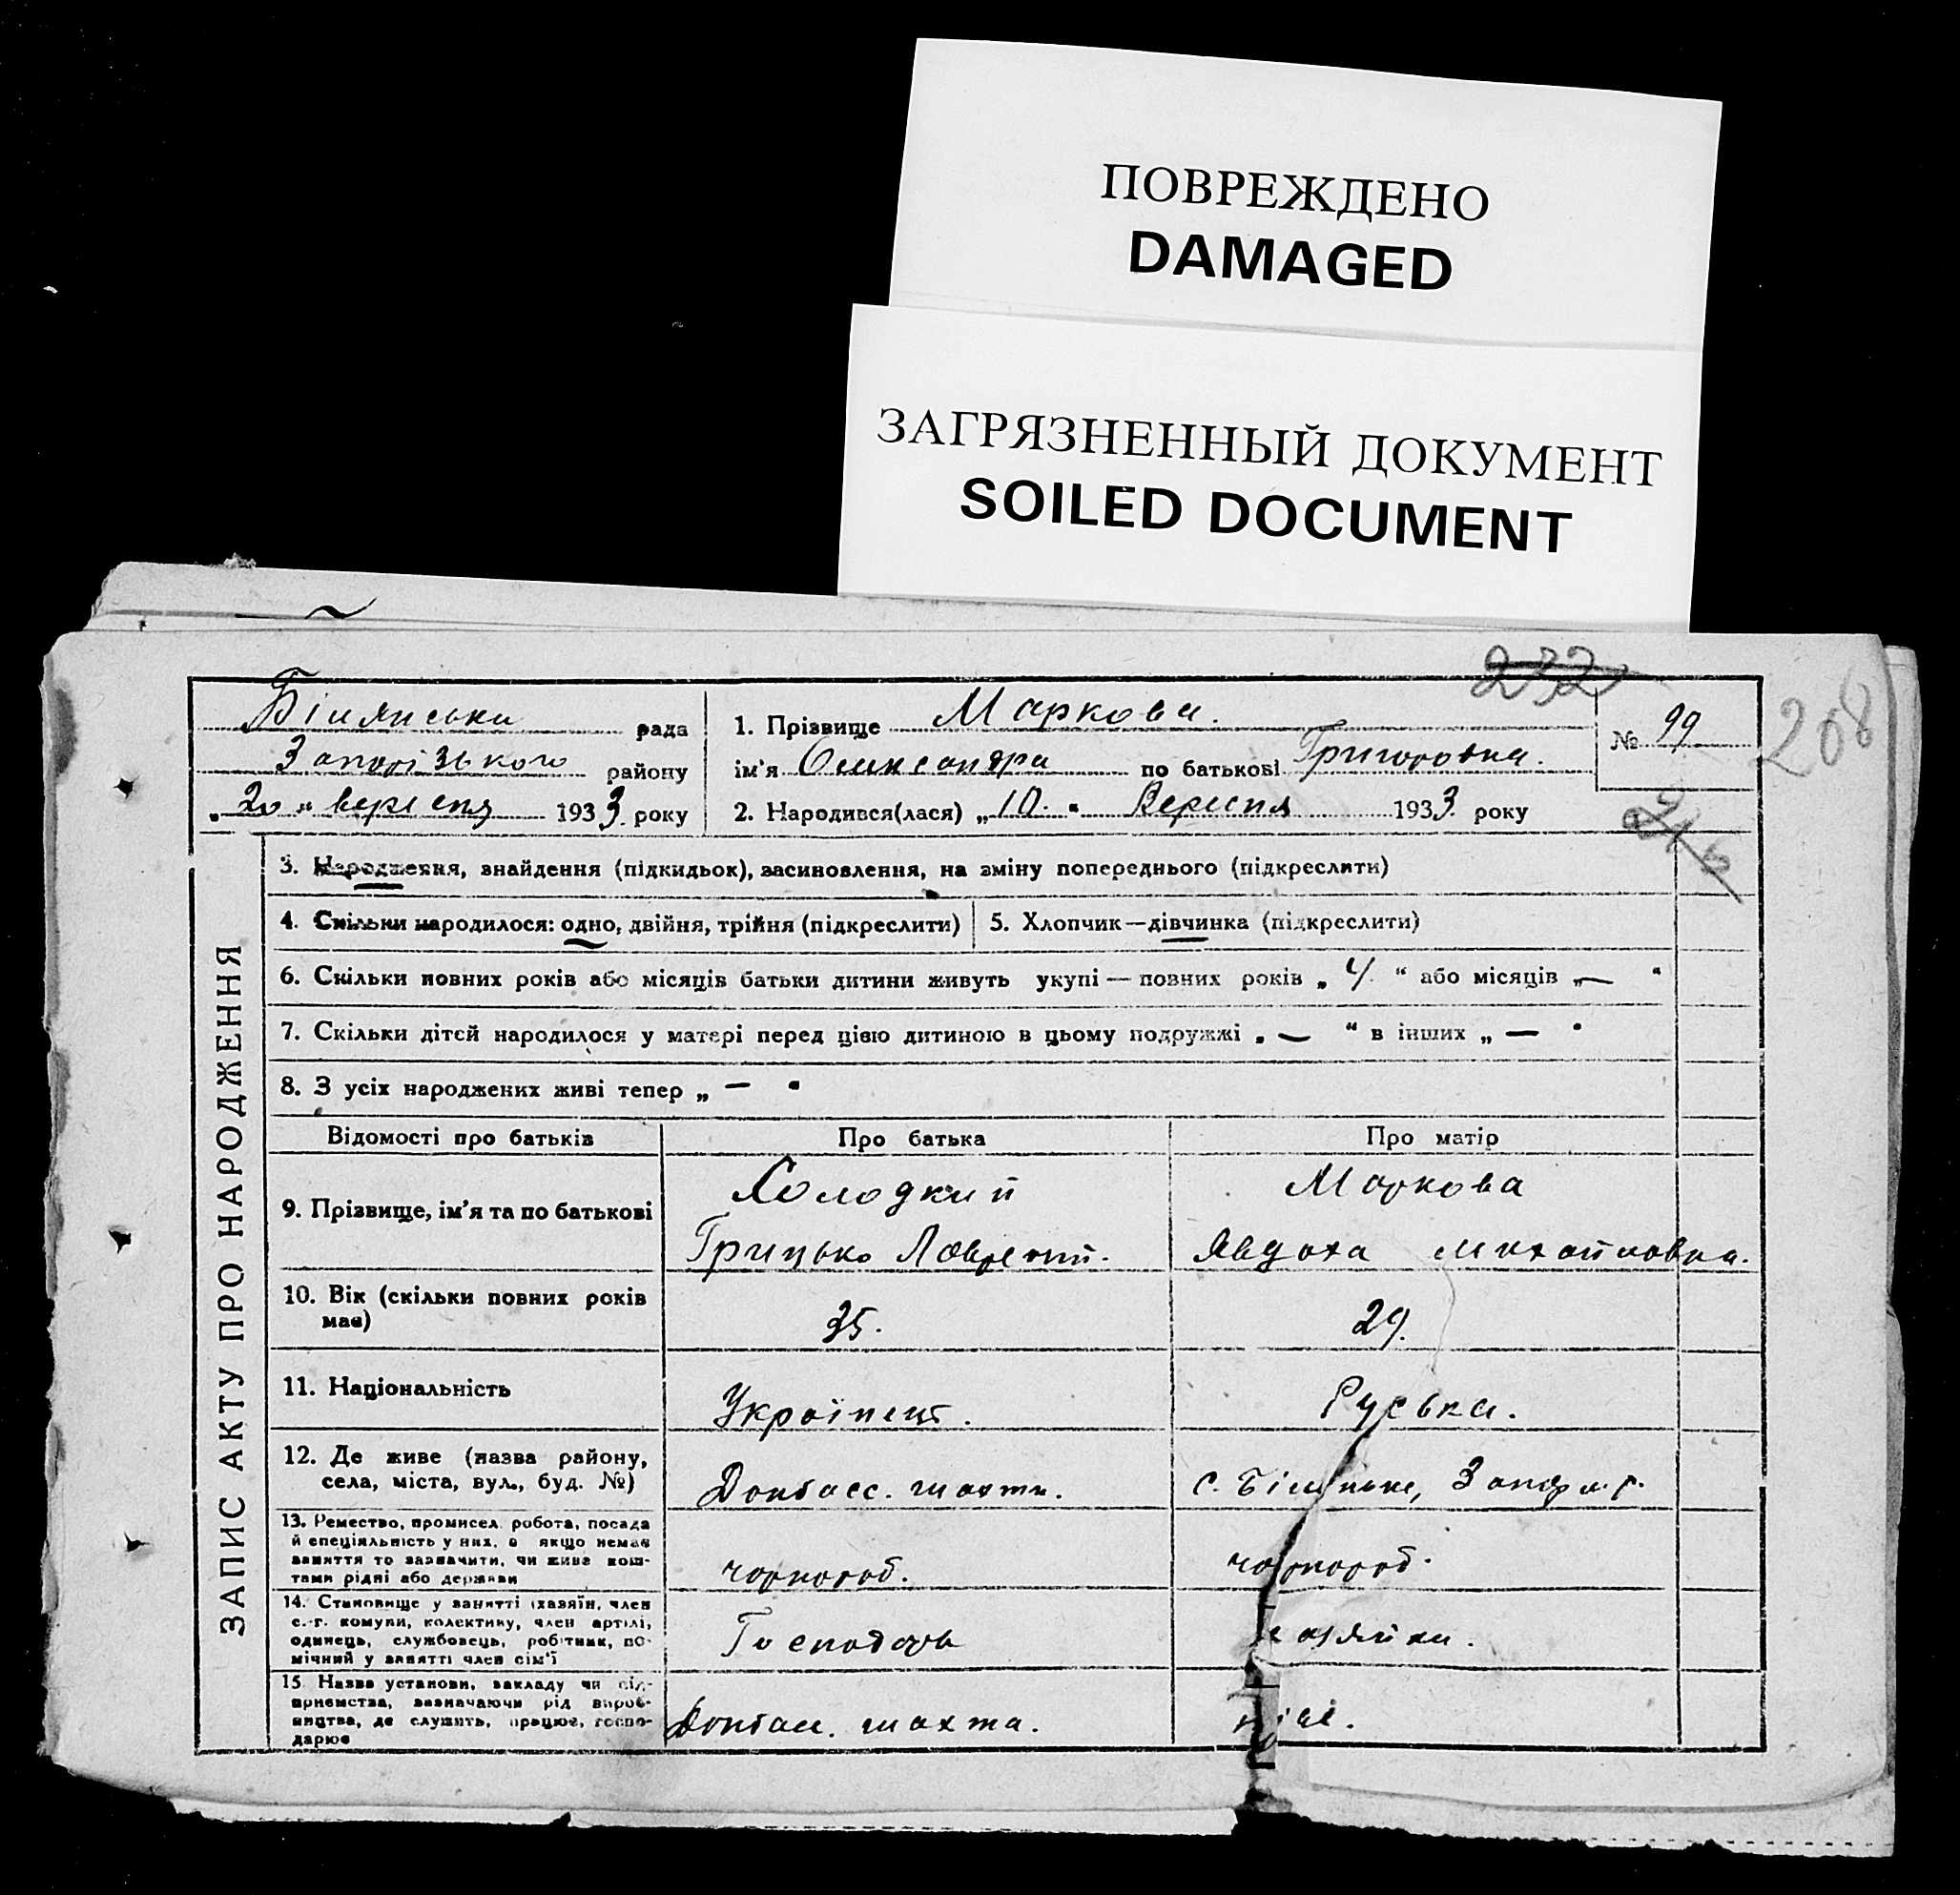 ПОВРЕЖДЕНО
DAMAGED
ЗАГРЯЗНЕННЫЙ ДОКУМЕНТ
SOILED DOCUMENT
232
208
Білянська рада
Запорізького району
„20“ вересня 1933 року
1. Прізвище Маркова.
ім'я Олександра по батькові Григоровна.
2. Народився(лася) „10.“ Вересня 1933 року
№ 99
ЗАПИС АКТУ ПРО НАРОДЖЕННЯ
3. Народження, знайдення (підкидьок), засиновлення, на зміну попереднього (підкреслити)
4. Скільки народилося: одно, двійня, трійня (підкреслити)
5. Хлопчик—дівчинка (підкреслити)
6. Скільки повних років або місяців батьки дитини живуть укупі — повних років „ 4. “ або місяців „ — “
7. Скільки дітей народилося у матері перед цією дитиною в цьому подружжі „ — “ в інших „ — “
8. З усіх народжених живі тепер „ — “
Відомості про батьків
Про батька
Про матір
9. Прізвище, ім'я та по батькові
Холодкий
Грицько Лаврентий.
Маркова
Явдоха Михайловна.
10. Вік (скільки повних років
має)
35.
29.
11. Національність
Українець.
Руська.
12. Де живе (назва району,
села, міста, вул., буд. №)
Донбасс. шахти.
с. Білянське, Запор. р.
13. Ремество, промисел, робота, посада
й спеціяльність у них, а якщо немає
заняття то зазначити, чи живе кош-
тами рідні або держави
чорнороб.
чорнороб.
14. Становище у занятті (хазяїн, член
с.-г. комуни, колективу, член артілі,
одинець, службовець, робітник, по-
мічний у занятті член сім'ї
Господарь
хазяйка.
15. Назва установи, закладу чи під-
приємства, зазначаючи рід вироб-
ництва, де служить, працює, госпо-
дарює
Донбасс. шахта.